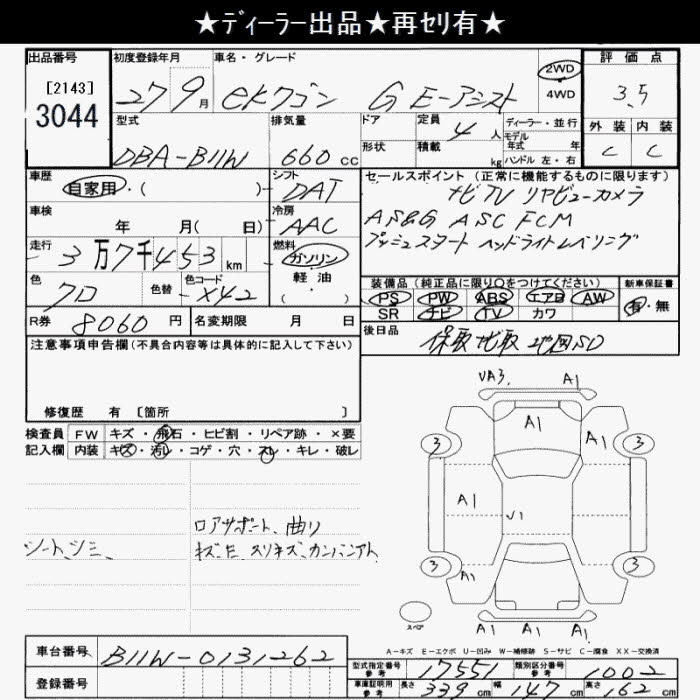 ★ディーラー出品★再セリ有★
出品番号 初度登録年月 車名・グレード 2WD 評価点
[2143] 27 9月 eKワゴン G E-アシスト 4WD 3.5
3044
型式 排気量 ドア 定員 4人 ディーラー・並行 外装 内装
モデル年式 年
DBA-B11W 660cc 形状 積載 kg ハンドル 左・右 C C
車歴 シフト セールスポイント(正常に機能するものに限ります)
自家用・( ) DAT ナビ TV リヤビューカメラ
車検 冷房 AS&G ASC FCM
年 月( 日) AAC プッシュスタート ヘッドライトレベリング
走行 燃料
3万7千453km ガソリン
色 色替 色コード 軽・油 装備品(純正品に限り○をつけてください) 新車保証書
クロ X42 ( ) PS PW ABS エアB AW 有・無
SR ナビ TV カワ
R券 8060円 名変期限 月 日 後日品 保取 ナビ取 地図SD
注意事項申告欄(不具合内容等は具体的に記入して下さい)
修復歴 有 [箇所 ]
検査員 FW キズ・飛石・ヒビ割・リペア跡・×要
記入欄 内装 キズ・汚レ・コゲ・穴・スレ・キレ・破レ
シートシミ、
ロアサポート 曲り
キズ・E スリキズ、カンバンアト
VA3. A1
A1
3 A1 3
A1 V1
3 A1 3
A1 A1 A1
スペア
A-キズ E-エクボ U-凹み W-補修跡 S-サビ C-腐食 XX-交換済
車台番号 B11W-0131262
登録番号
型式指定番号 参考 17551 類別区分番号 参考 1002
車庫証明用 参考 長さ 339cm 幅 147cm 高さ 162cm